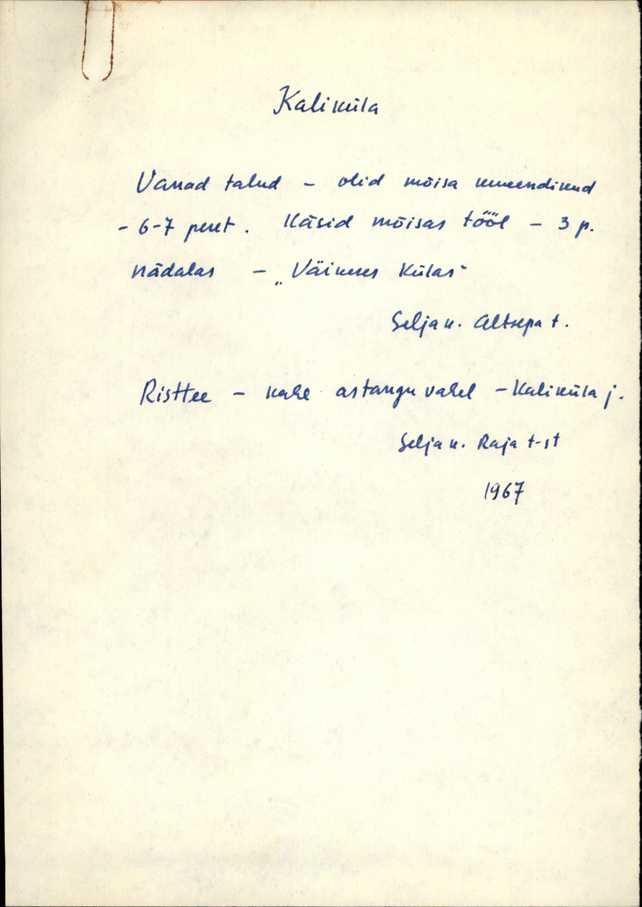 Kaliküla
Vanad talud – olid mõisa
– 6-7 peret. Käisid mõisas tööl – 3 p.
nädalas – „Väikeses külas"
Selja k. Altsepa t.
Risttee – kahe astangu vahel – Kaliküla j.
Selja k. Raja t-st
1967